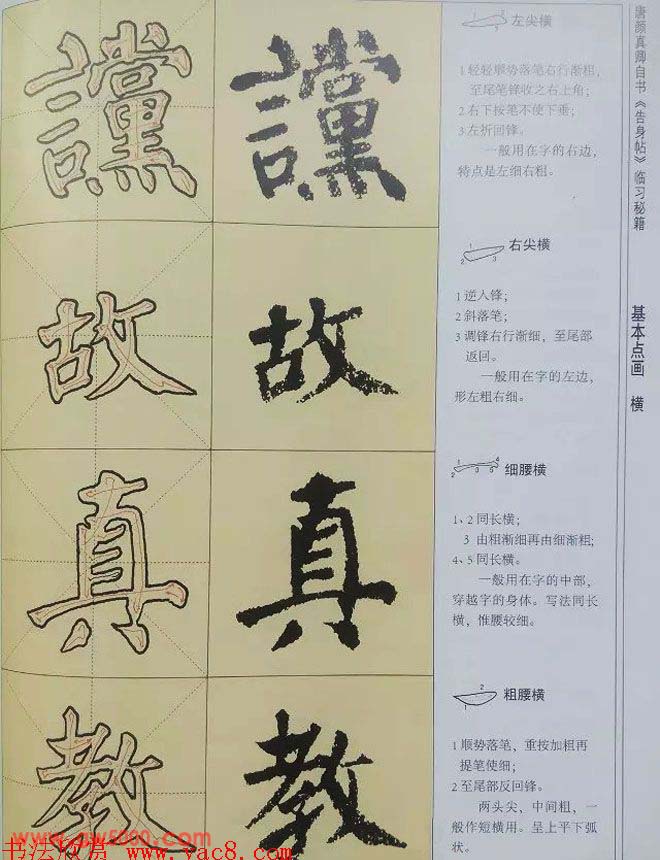 唐颜真卿自书《告身帖》临习秘籍
基本点画 横
讜 讜
左尖横
1轻轻顺势落笔右行渐粗，
至尾笔锋收之右上角；
2右下按笔不使下垂；
3左折回锋。
一般用在字的右边，
特点是左细右粗。
故 故
右尖横
1逆入锋；
2斜落笔；
3调锋右行渐细，至尾部
返回。
一般用在字的左边，
形左粗右细。
真 真
细腰横
1、2同长横；
3 由粗渐细再由细渐粗；
4、5同长横。
一般用在字的中部，
穿越字的身体。写法同长
横，惟腰较细。
教 教
粗腰横
1顺势落笔，重按加粗再
提笔使细；
2至尾部反回锋。
两头尖，中间粗，一
般作短横用。呈上平下弧
状。
书法欣赏 www.yac8.com